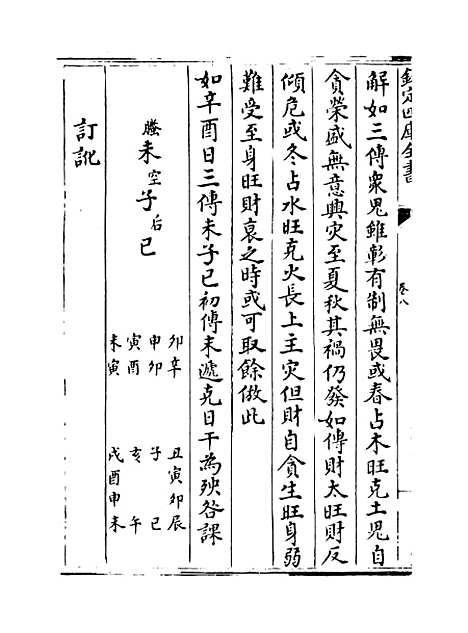 欽定四庫全書
卷八
解如三傳衆鬼雖彰有制無畏或春占木旺克土鬼自
貪榮盛無意興灾至夏秋其禍仍發如傳財太旺財反
傾危或冬占水旺克火長上主灾但財自貪生旺身弱
難受至身旺財衰之時或可取餘倣此
如辛酉日三傳未子巳初傳末遞克日干為殃咎課
卯辛　丑寅卯辰
申卯　子　巳
寅酉　亥　午
未寅　戌酉申未
螣未空子后巳
訂訛